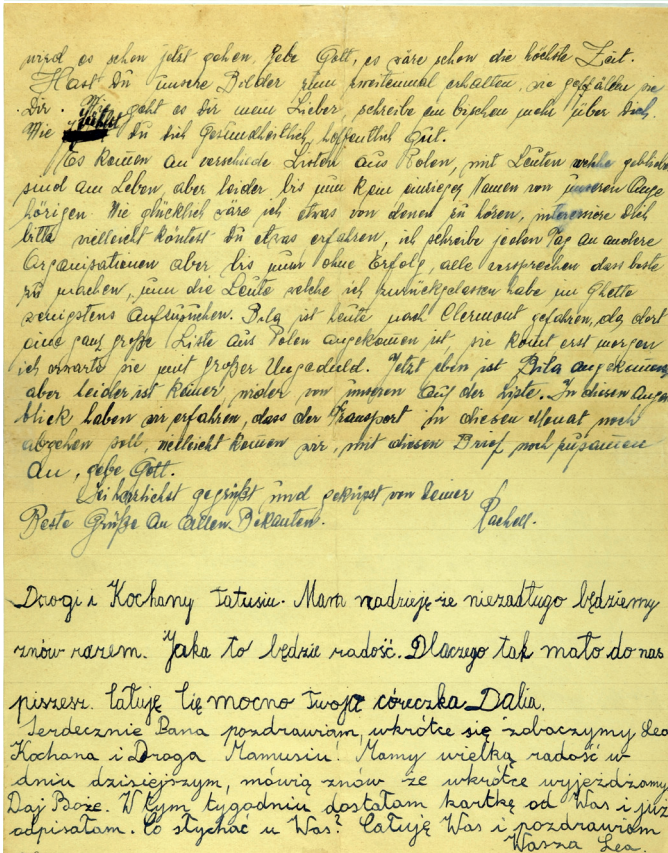 wird es schon jetzt gehen, gebe Gott, es wäre schon die höchste Zeit.
Hast Du unsere Bilder zum zweitenmal erhalten, wie gefällen sie
Dir. Wie geht es dir mein Lieber, schreibe ein bischen mehr über Dich,
Wie fühlst Du dich Gesundheitlich, hoffentlich Gut.
Es komen an verschiede Listen aus Polen, mit Leuten welche geblieben
sind am Leben, aber leider bis nun kein einziger Namen von unseren Ange
hörigen. Wie glücklich wäre ich etwas von denen zu hören, interessiere Dich
bitte vielleicht köntest Du etwas erfahren, ich schreibe jeden Tag an andere
Organisationen aber bis nun ohne Erfolg, alle versprechen dass beste
zu machen, um die Leute welche ich zurückgelassen habe im Ghetto
wenigstens Aufzusuchen. Bila ist heute nach Clermont gefahren, da dort
eine ganz große Liste aus Polen angekomen ist, sie komt erst morgen
ich erwarte sie mit großer Ungeduld. Jetzt eben ist Bila angekomen,
aber leider ist keiner wider von unseren auf der Liste. In diesen Augen
blick haben wir erfahren, dass der Transport in diesen Monat noch
abgehen soll, vielleicht komen wir, mit diesen Brief noch zusamen
An, gebe Gott.
Sei herzlichst gegrüßt und geküsst von deiner
Beste Grüße an allen Bekanten. Rachell.
Drogi i Kochany tatusiu. Mam nadzieję że niezadługo będziemy
znów razem. Jaka to będzie radość. Dlaczego tak mało do nas
piszesz. Całuję Cię mocno twoja córeczka Dalia.
Serdecznie Pana pozdrawiam, wkrótce się zobaczymy Lea
Kochana i Droga Mamusiu! Mamy wielką radość w
dniu dzisiejszym, mówią znów że wkrótce wyjeżdżamy
Daj Boże. W tym tygodniu dostałam kartkę od Was i już
odpisałam. Co słychać u Was? Całuję Was i pozdrawiam
Wasza Lea.